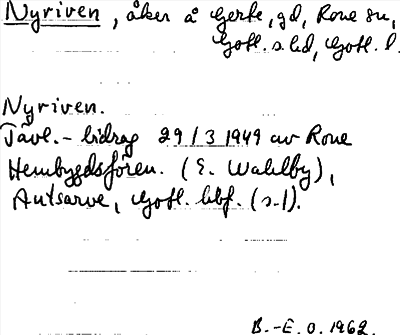 Nyriven, åker å Gerte, gd, Rone sn,
Gotl. s. hd, Gotl. l.
Nyriven.
Tävl.-bidrag 29/3 1949 av Rone
Hembygdsfören. (E. Wahlby),
Autsarve, Gotl. hbf. (s.1).
B.-E. O. 1962.